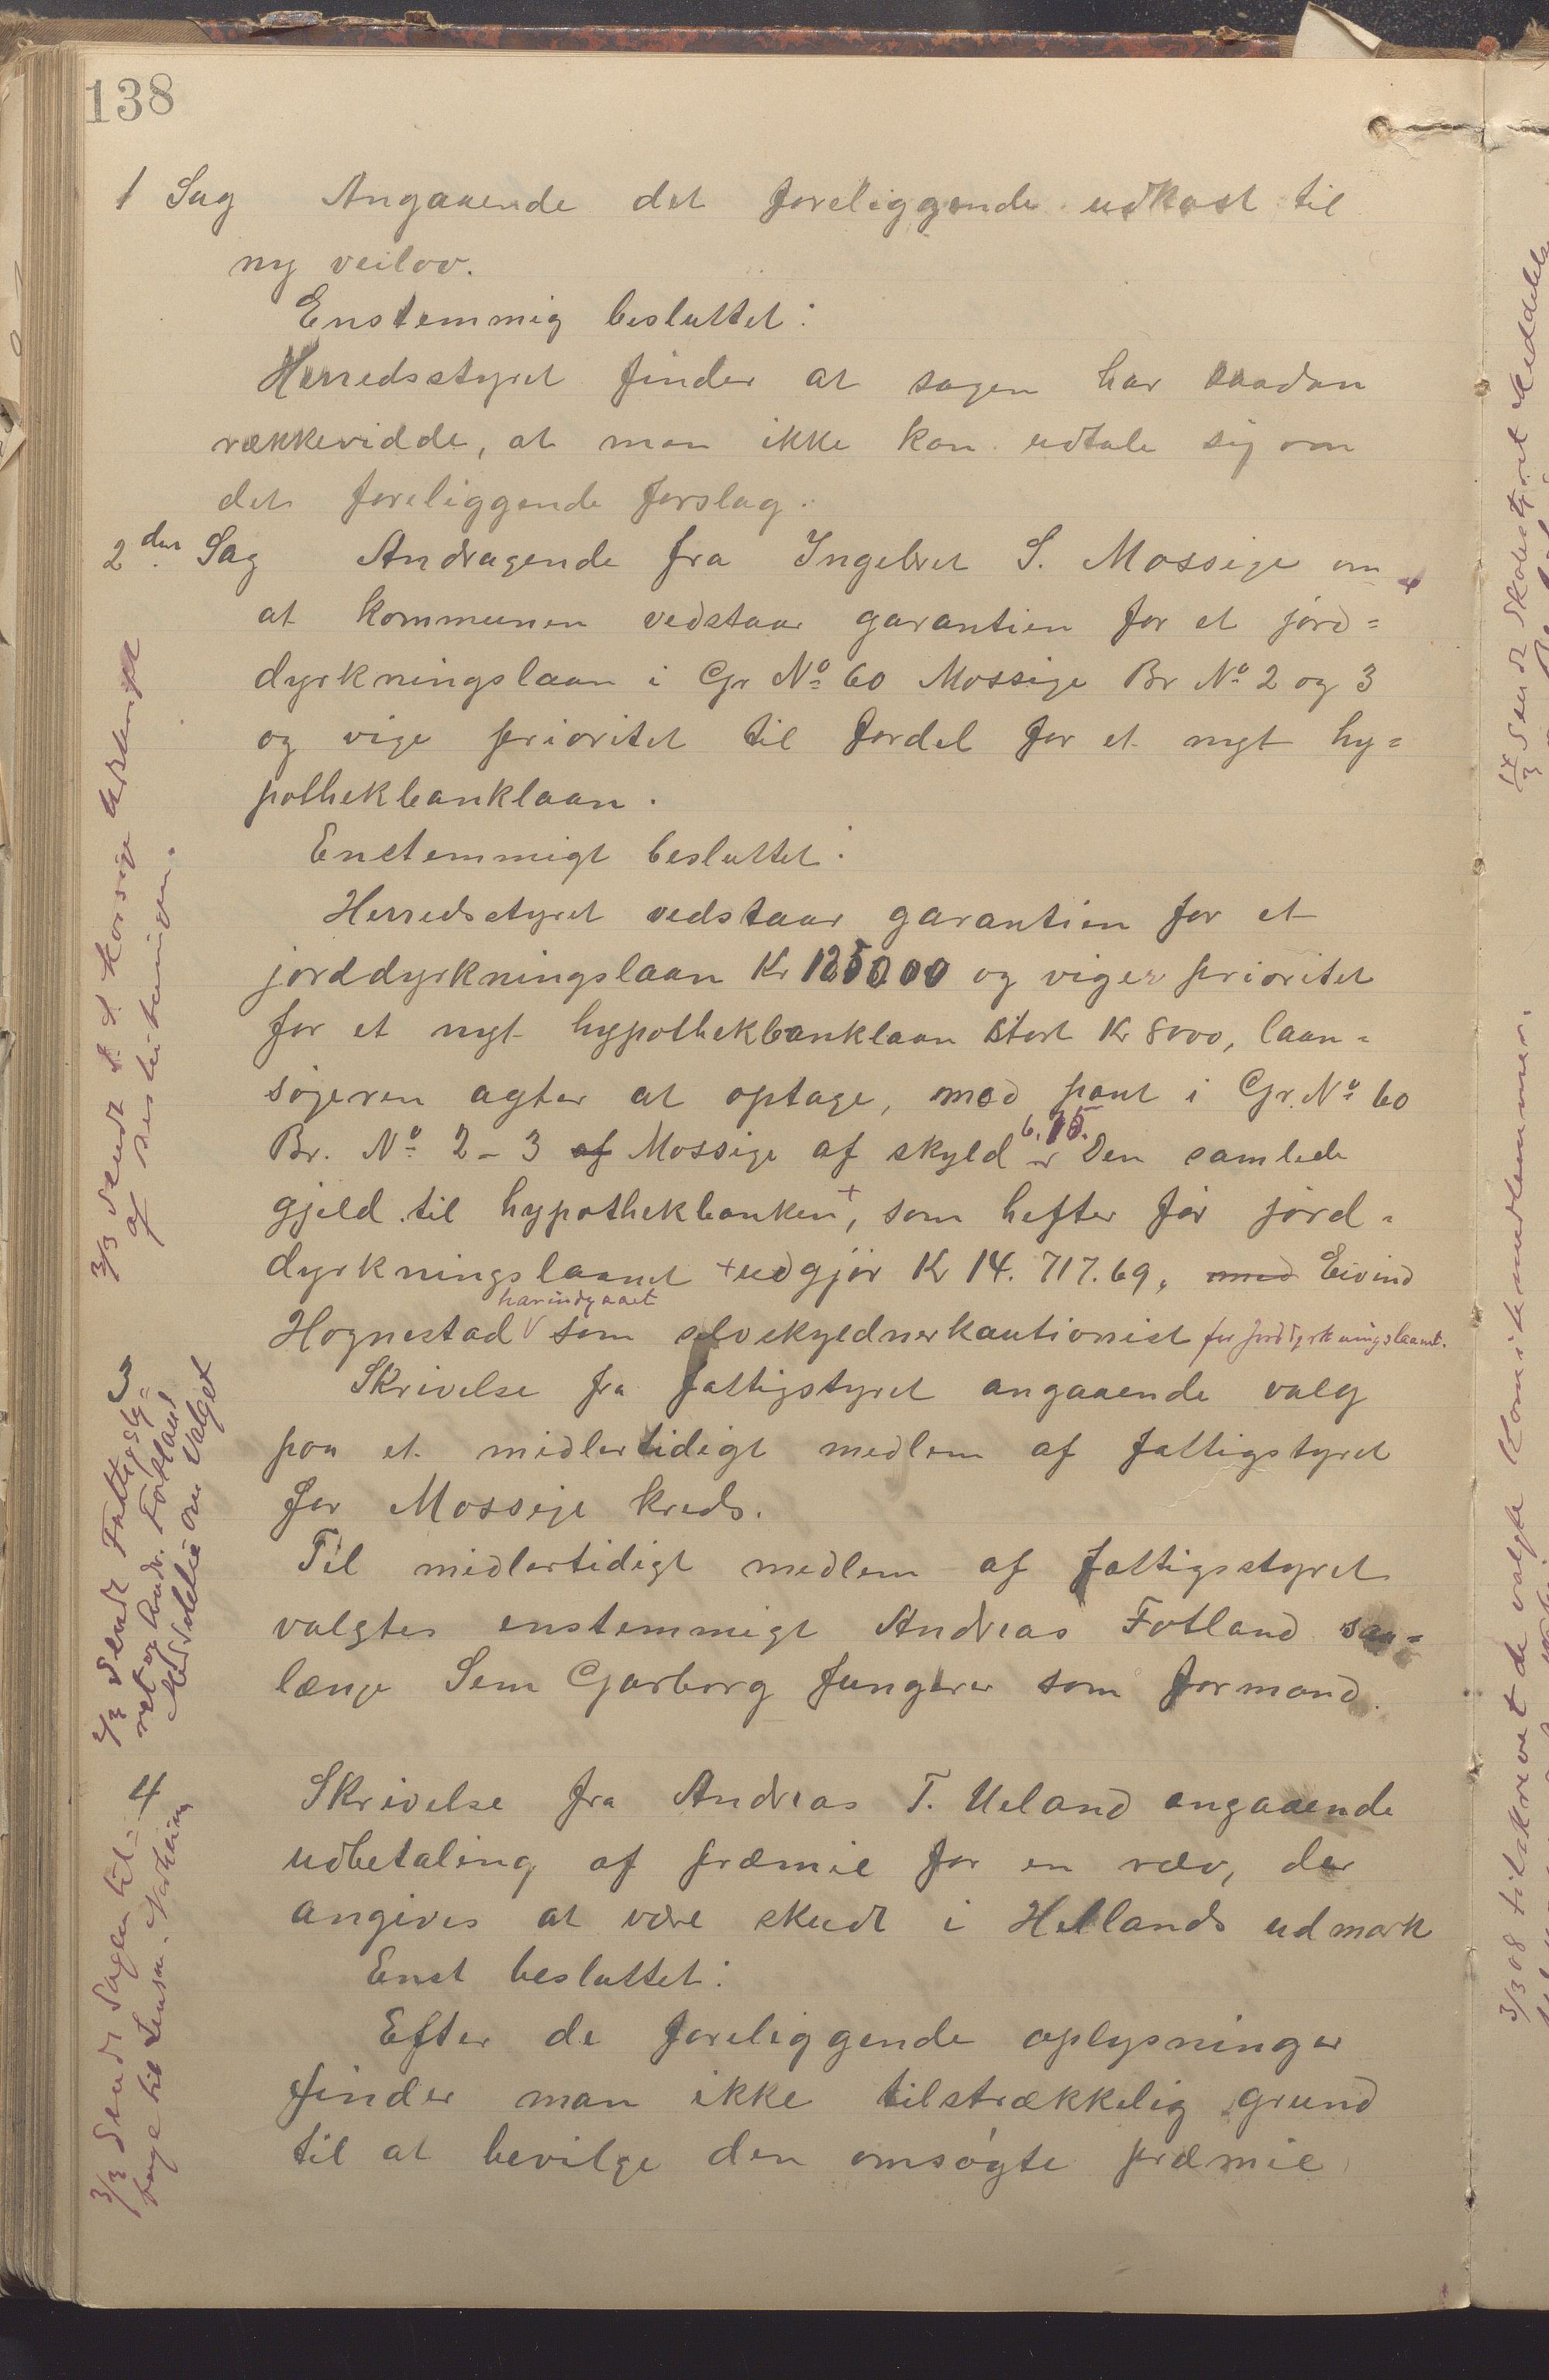 138
1 Sag Angaaende det foreliggende udkast til
ny veilov.
Enstemmig besluttet:
Herredsstyret finder at sagen har saadan
rækkevidde, at man ikke kan udtale sig om
det foreliggende forslag.
2den Sag Andragende fra Ingebret S. Mossige om
at kommunen vedstaar garantien for et jord=
dyrkningslaan i Gr No 60 Mossige Br No 2 og 3
og vige prioritet til fordel for et nyt hy=
pothekbanklaan.
Enstemmigt besluttet:
Herredsstyret vedstaar garantien for et
jorddyrkningslaan Kr 1250.00 og viger prioritet
for et nyt hypothekbanklaan stort Kr 8000, laan=
søgeren agter at optage, med pant i Gr. No 60
Br. No 2-3 af Mossige af skyld 6,15. Den samlede
gjeld til hypothekbanken +, som hefter før jord=
dyrkningslaanet + udgjør Kr 14.717.69, med Eivind
Hognestad har indgaaet som selvskyldnerkautionist for jorddyrkningslaanet.
3
Skrivelse fra fattigstyret angaaende valg
paa et midlertidigt medlem af fattigstyret
for Mossige kreds.
Til midlertidigt medlem af fattigsstyret
valgtes enstemmigt Andreas Fotland saa=
længe Sem Garborg fungerer som formand.
4
Skrivelse fra Andreas T. Ueland angaaende
udbetaling af præmie for en ræv, der
angives at være skudt i Hellands udmark
Enst besluttet:
Efter de foreliggende oplysninger
finder man ikke tilstrækkelig grund
til at bevilge den omsøgte præmie
3/3 sendt
af beslutningen.
sendt Fattigsty=
ret og Andr. Fotland
Meddelelse om Valget
3/3 Sendt Sagen til=
bage til Lensm.
17/3 Sendt Skolestyret Meddelelse
3/3 08 tilskrevet de valgte Komitemedlemmer.